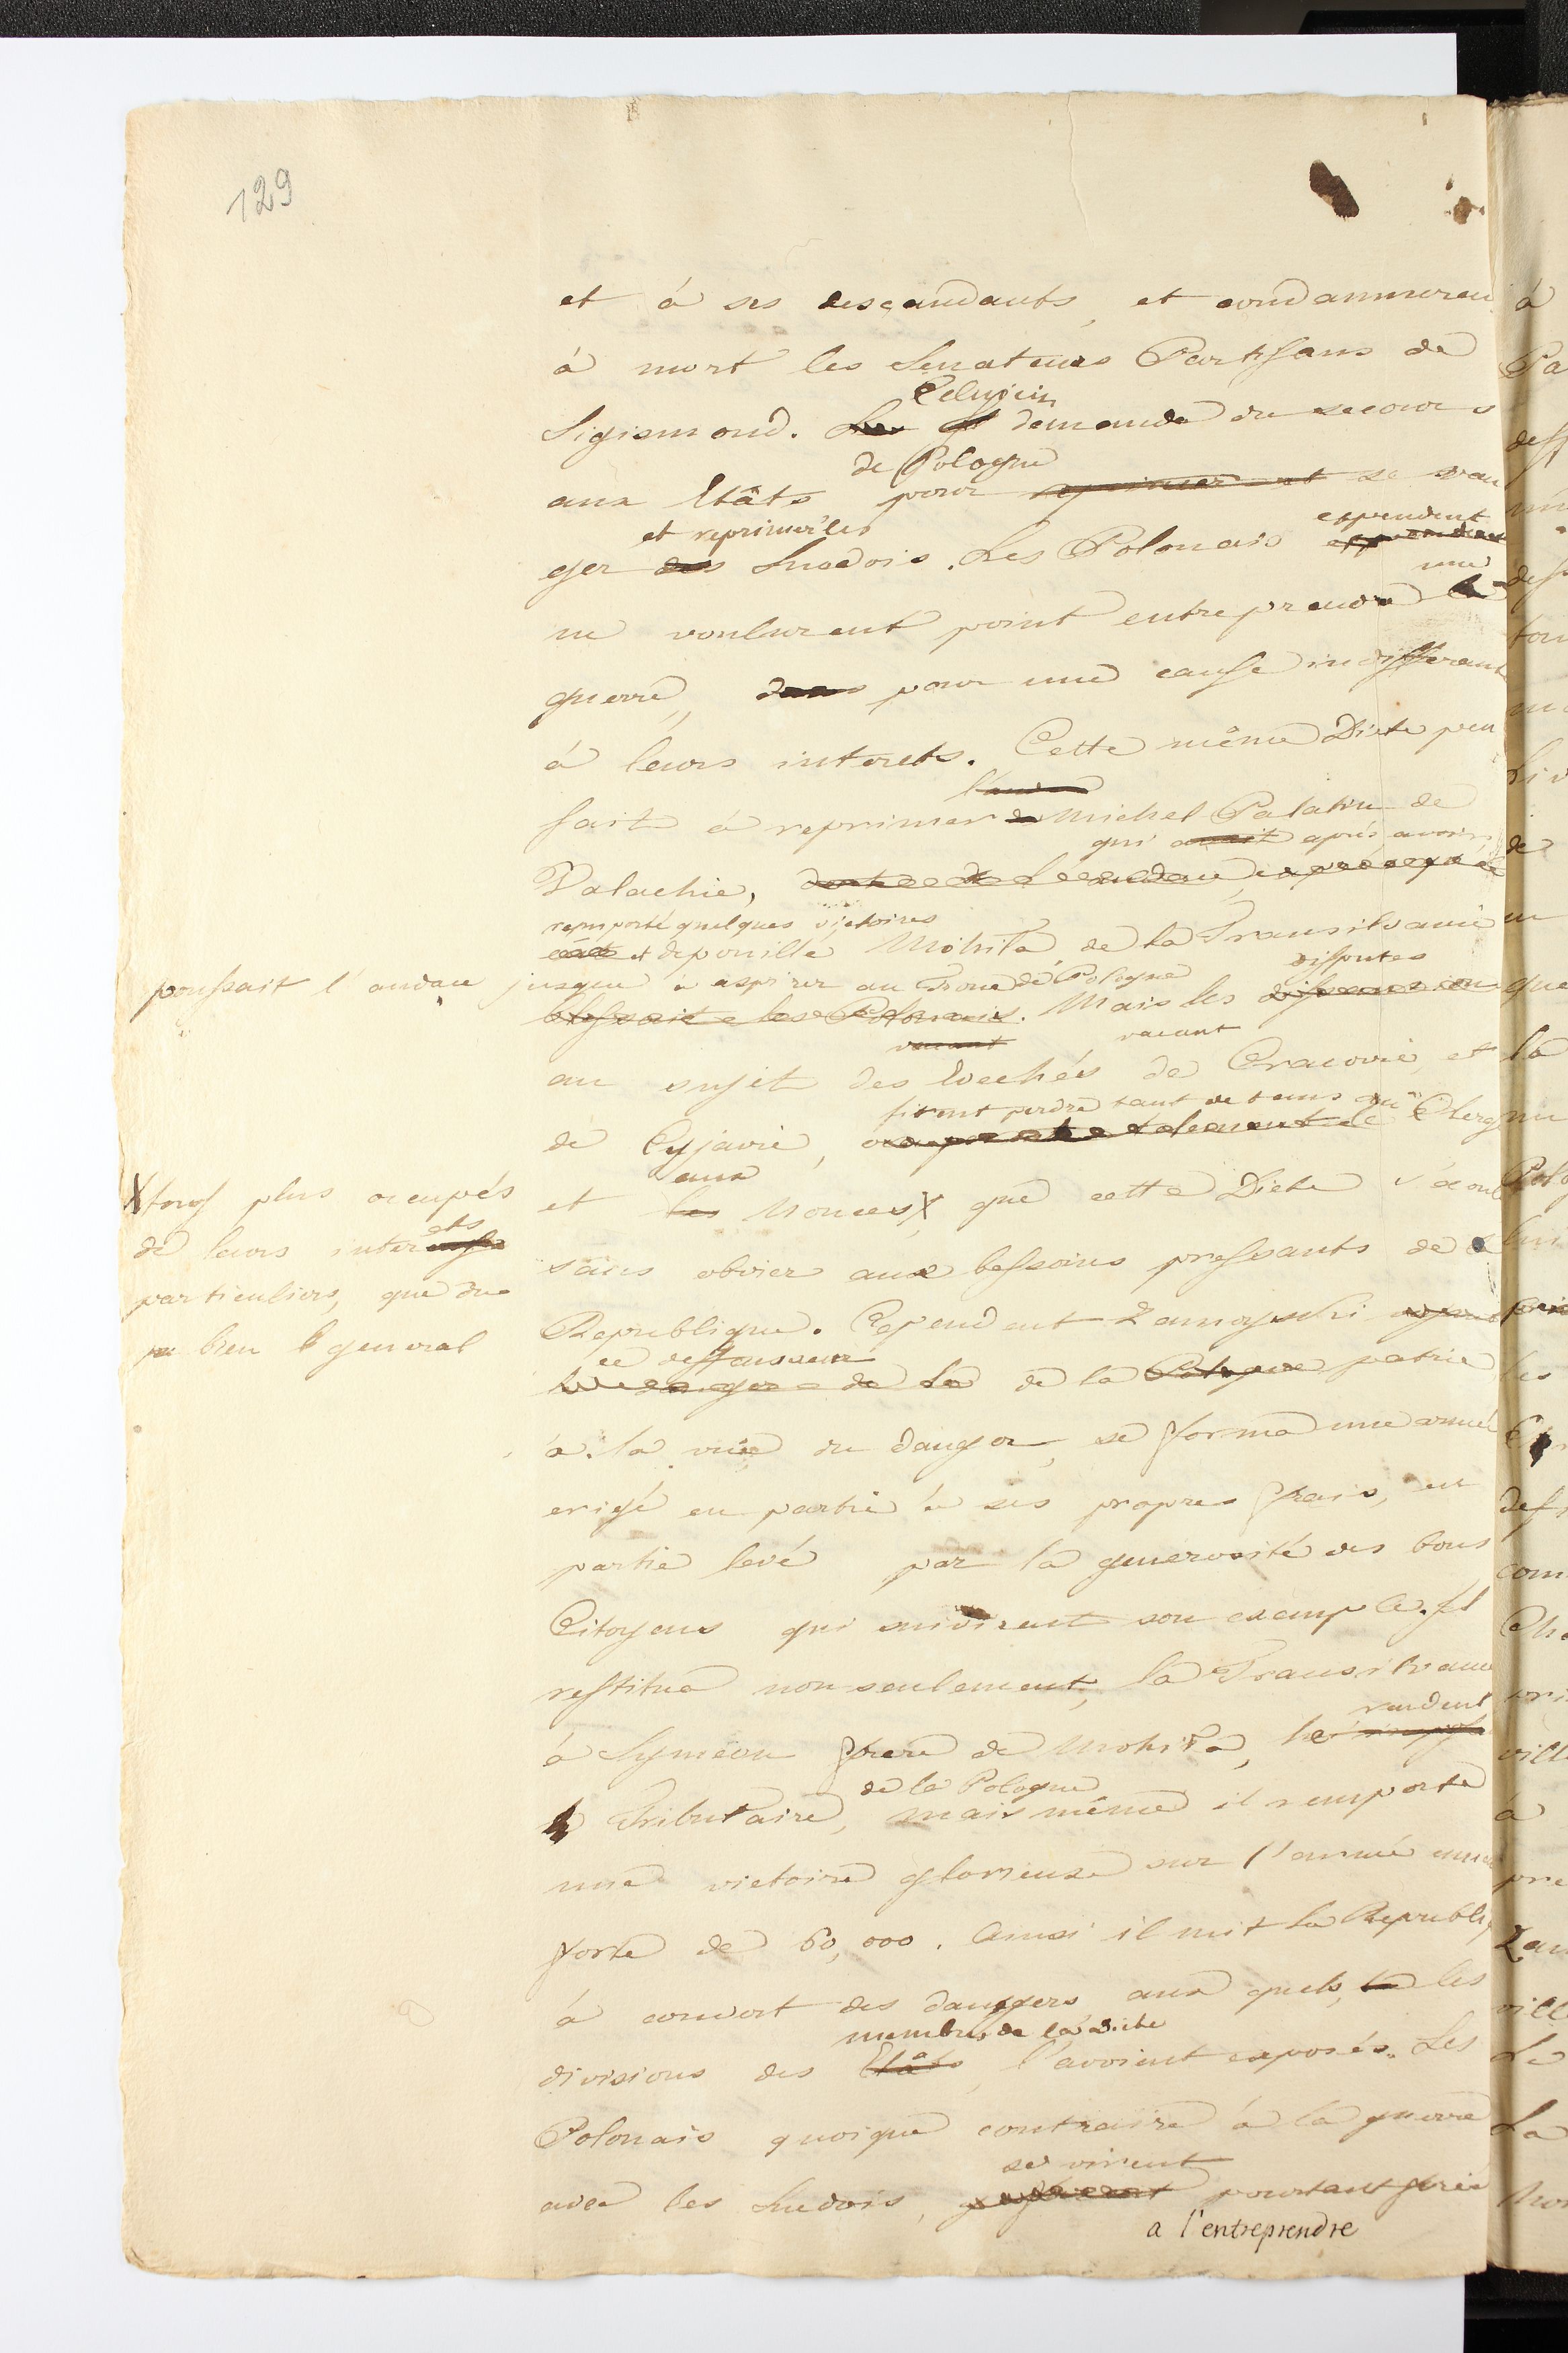 129
et á ses desçandants, et condamneren
á mort les Senateurs Partisans de
Celuici
Sigismond. demanda du secours
de Pologne
aux Etâts pour se van
et reprimer les cependent
ger des Suedois. Les Polonais
une
ne voulurent point entreprendre la
guerre, dans pour une cause indifferant
á leurs interets. Cette même Diete pen
l'auda
sait á reprimer Michel Palatin de
qui avait aprés avoir
Valachie,
remporté quelques victoires
et depouillé Mohila de la Transilvanie
disputes
poussait l'audace jusque a aspirer au Trone de Pologne
blessait les Polonais. Mais les dissension
vacant vacant
au sujet des Evechés de Cracovie et
firent perdre tant de tems au
de Cujavie, Clerg
aux
et les Nonces X que cette Diete s'ecoul
X tous plus occupés
de leurs interets
particuliers, que du
bien general
sans obvier aux bessoins pressants de la
Republique. Cependent Zamoyski
ce deffansseur
de la de la Pologne patrie
á la vue du danger, se forma une armée
erigé en partie á ses propres frais, en
partie levé par la generosité des bons
Citoyens qui suivirent son exemple. Il
restitua non seulement, la Transilvanie
rendent
á Symeon frere de Mohila, le
de la Pologne
Tributaire, mais même il remporta
une victoire glorieuse sur l'armée enne
forte de 60,000. Ainsi il mit la Republiq
á couvert des dangers aux quels, les
membres de la diete
divisions des Etâts l'avoient exposés. Les
Polonais quoique contraire á la guerre
se virent
avec les Suedois, pourtant forcé
a l'entreprendre